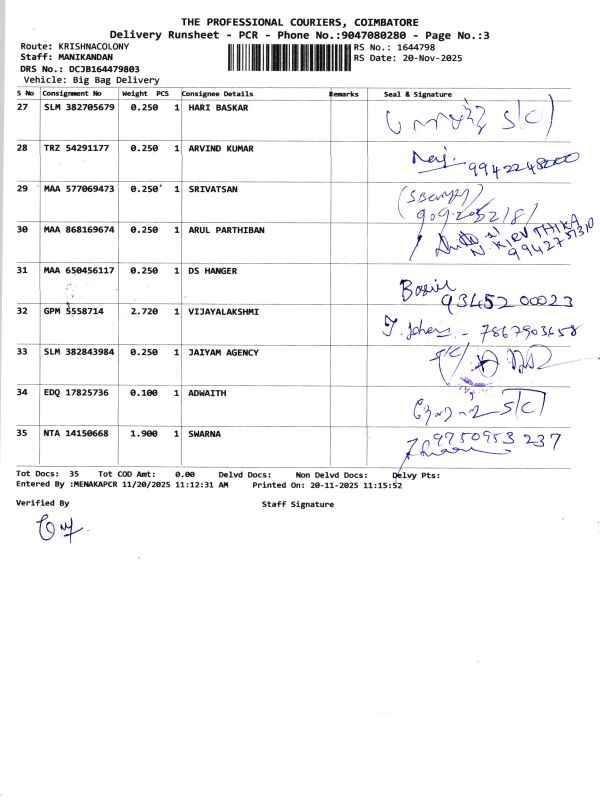 THE PROFESSIONAL COURIERS, COIMBATORE
Delivery Runsheet - PCR - Phone No.:9047080280 - Page No.:3
Route: KRISHNACOLONY RS No.: 1644798
Staff: MANIKANDAN RS Date: 20-Nov-2025
DRS No.: DCJB164479803
Vehicle: Big Bag Delivery
S No Consignment No Weight PCS Consignee Details Remarks Seal & Signature
27 SLM 382705679 0.250 1 HARI BASKAR S/C
28 TRZ 54291177 0.250 1 ARVIND KUMAR
29 MAA 577069473 0.250 1 SRIVATSAN
30 MAA 868169674 0.250 1 ARUL PARTHIBAN N. KIRUTHIKA
31 MAA 650456117 0.250 1 DS HANGER 93452 00023
32 GPM 5558714 2.720 1 VIJAYALAKSHMI 7867903658
33 SLM 382843984 0.250 1 JAIYAM AGENCY S/C
34 EDQ 17825736 0.100 1 ADWAITH S/C
35 NTA 14150668 1.900 1 SWARNA 9750953237
Tot Docs: 35 Tot COD Amt: 0.00 Delvd Docs: Non Delvd Docs: Delvy Pts:
Entered By :MENAKAPCR 11/20/2025 11:12:31 AM Printed On: 20-11-2025 11:15:52
Verified By Staff Signature